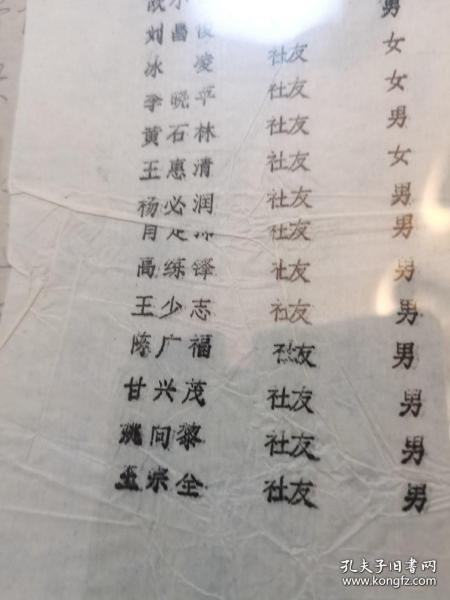 刘昌俊
冰凌 社友 女
李晓平 社友 女
黄石林 社友 男
王惠清 社友 女
杨必润 社友 男
社友 男
高练铎 社友 男
王少志 社友 男
陈广福 社友 男
甘兴茂 社友 男
姚问黎 社友 男
宗全 社友 男
孔夫子旧书网
www.kongfz.com